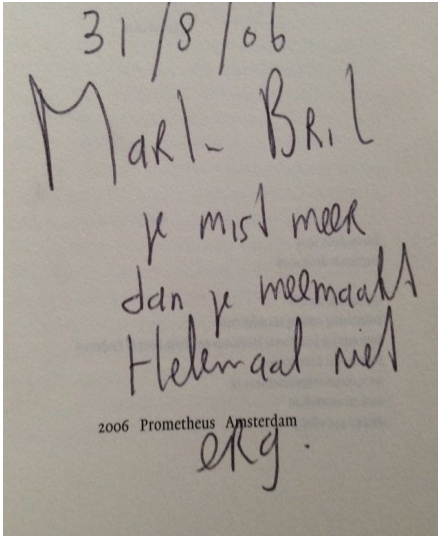 31/8/06
Martin Bril
je mist meer
dan je meemaakt
Helemaal niet
2006 Prometheus Amsterdam
erg.